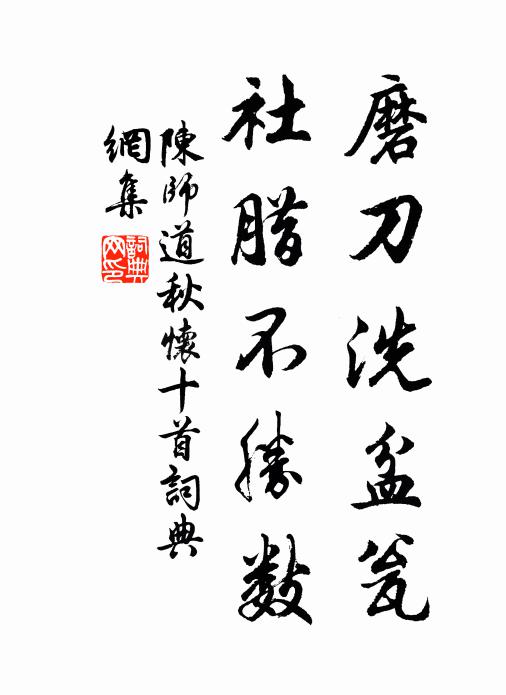 磨刀洗盆瓮
社腊不勝数
陳師道秋懷十首詞典
網集
詞典
网印